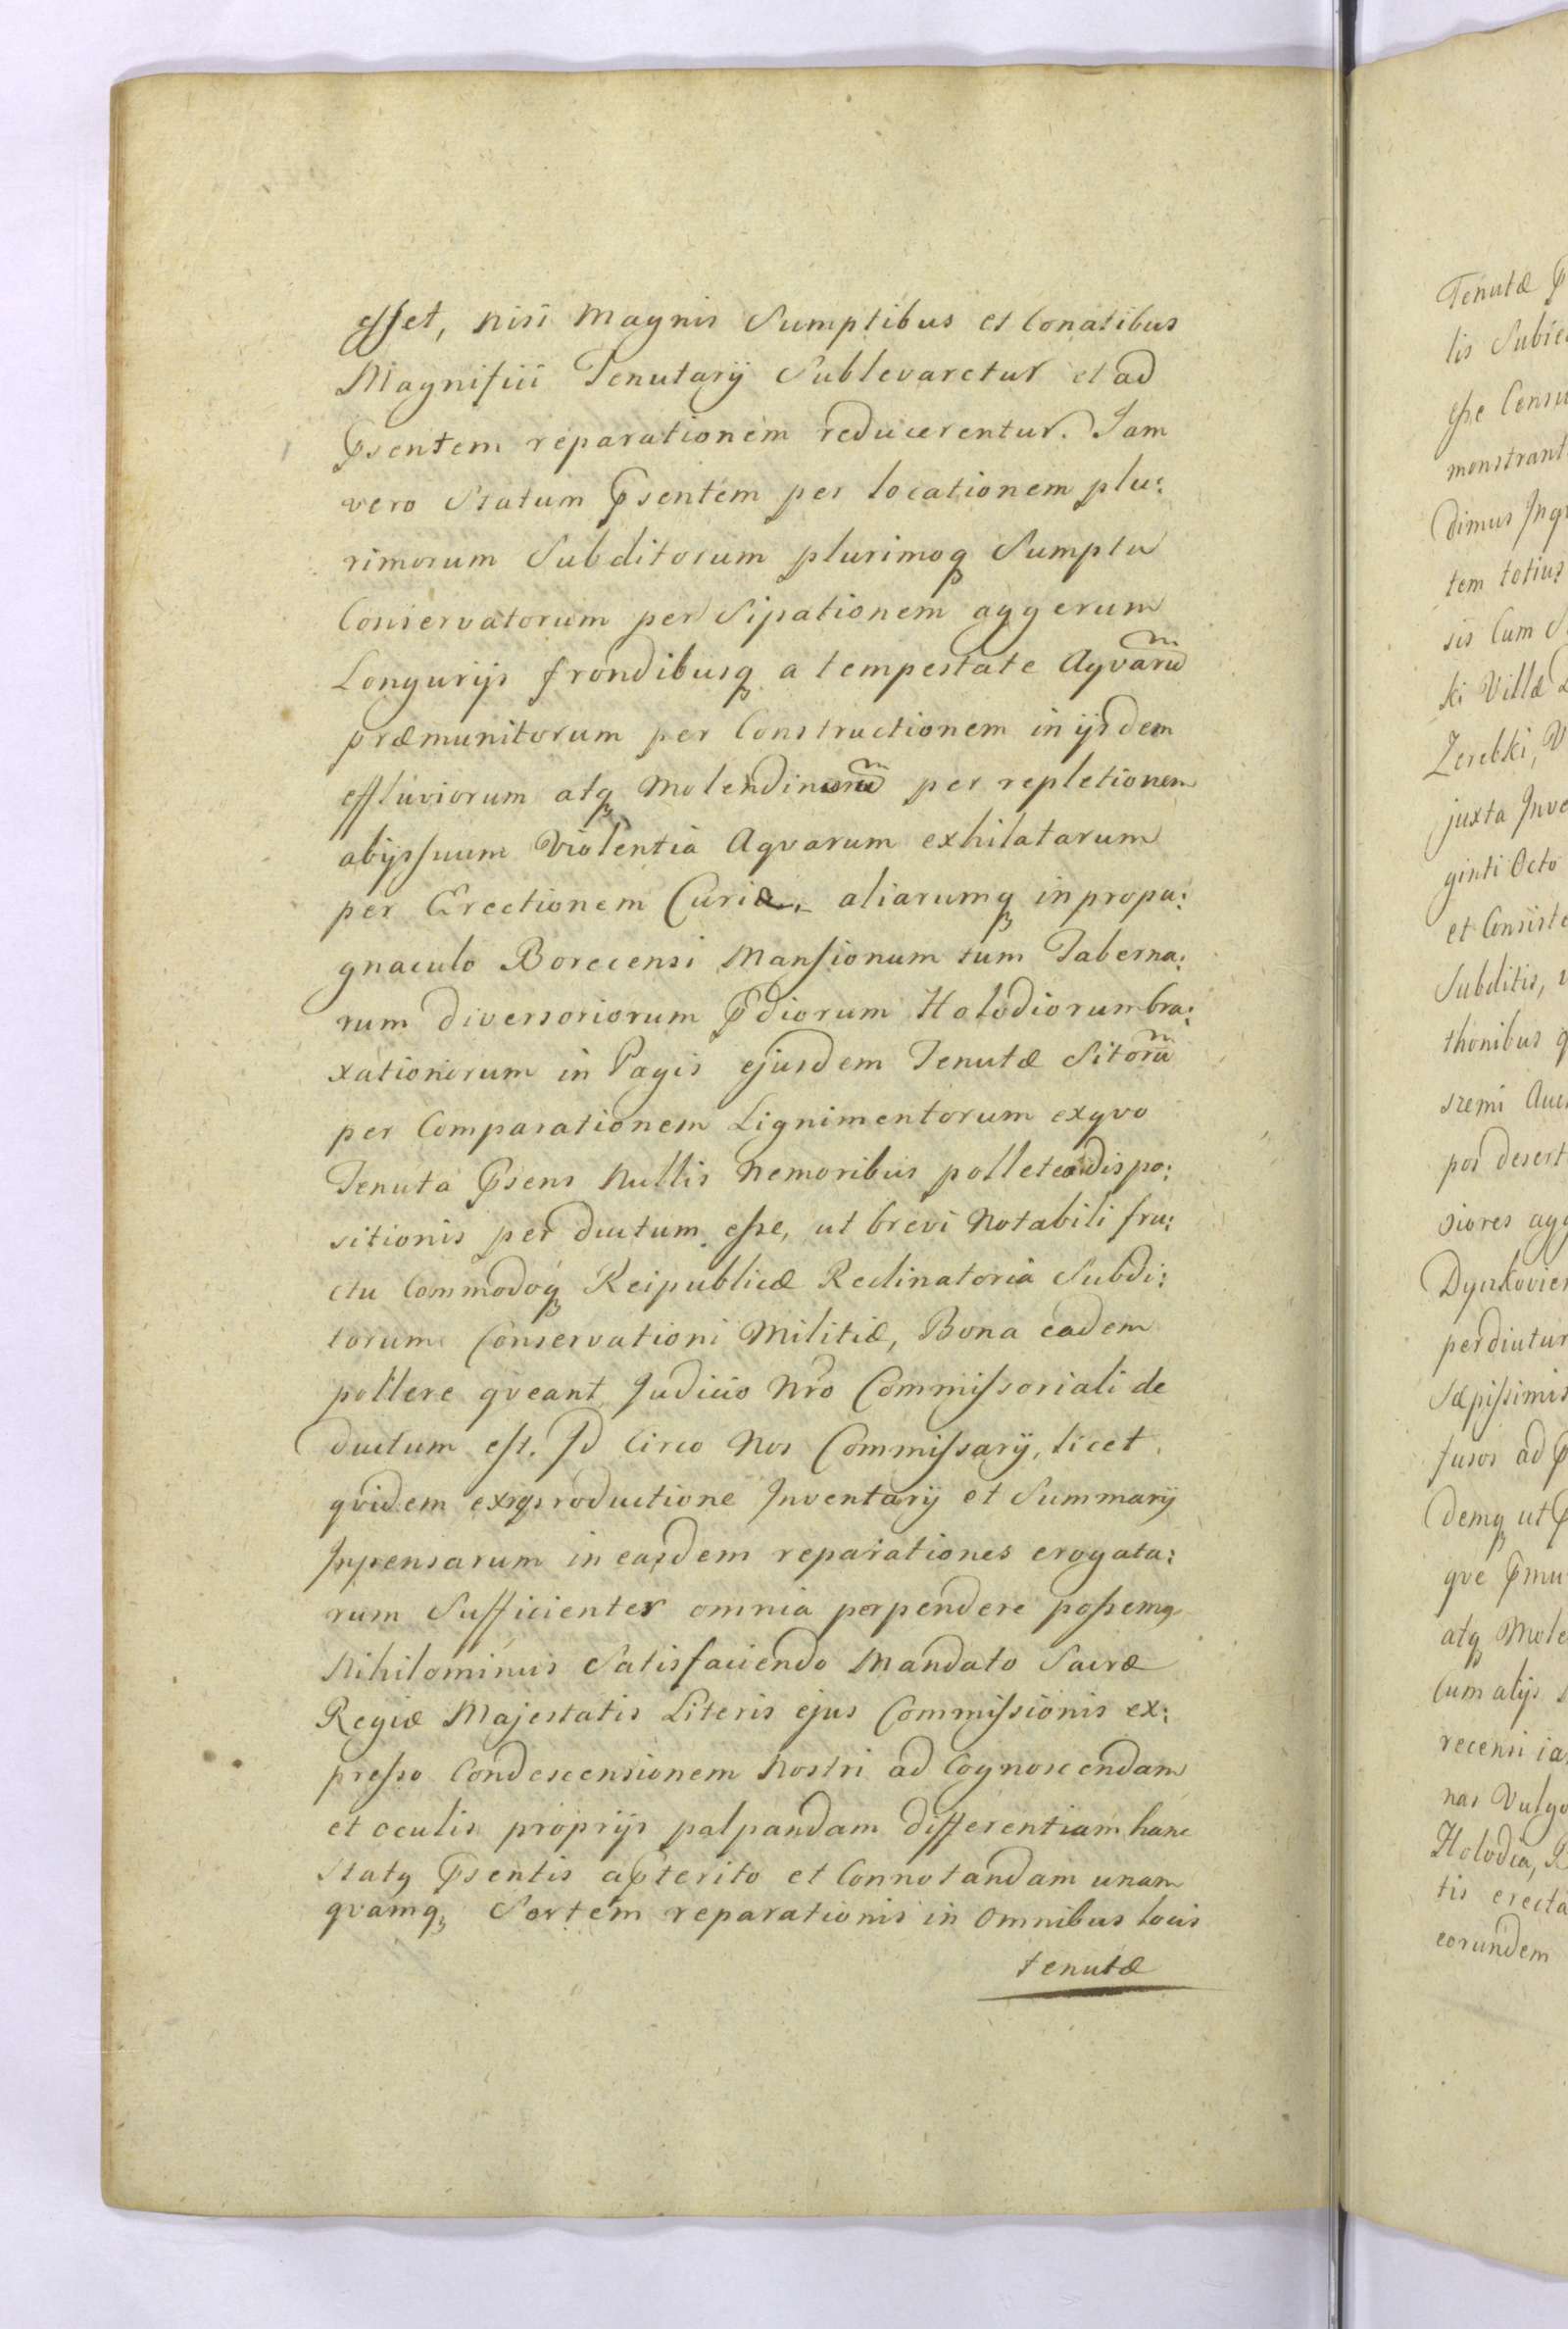 esset, nisi Magnis Sumptibus et Conatibus
Magnifici Tenutarij Sublevaretur et ad
Pśentem reparationem reducerentur. Jam
vero Statum Pśentem per locationem plu:
rimorum Subditorum plurimoq₃ Sumptu
Conservatorum per Sipationem aggerum
Longurijs frondibusq₃ a tempestate Aqvarū
præmunitorum per Constructionem in ijsdem
effluviorum atq₃ Molendinorū per repletionem
abijssuum Violentia Aqvarum exhilatarum
per Erectionem Curiæ, aliarumq₃ in propu:
gnaculo Borecensi Mansionum tum Taberna:
rum diversoriorum Pdiorum Holodiorum bra:
xationiorum in Pagis ejusdem Tenutæ Sitorū
per Comparationem Lignimentorum exqvo
Tenuta Pśens Nullis Nemoribus pollet eo dispo:
sitionis per ductum esse, ut brevi Notabili fru:
ctu Commodoq₃ Reipublicæ Reclinatoria Subdi:
torum Conservationi Militiæ, Bona eadem
pollere qveant Judicio Nr̃o Commissoriali de
ductum est. Id Circo Nos Commissarij, licet
qvidem ex productione Inventarij et Summarij
Inpensarum in easdem reparationes erogata:
rum Sufficienter omnia perpendere possemq
Nihilominus Satisfaciendo Mandato Sacræ
Regiæ Majestatis Literis ejus Commissionis ex:
presso Condescensionem Nostri ad Cognoscendam
et oculis proprijs palpandam differentiam hanc
Statq Pśentis a Pterito et Connotandam unam
qvamq₃ Sortem reparationis in Omnibus locis
tenutæ
Tenutæ
lis
esse
monstrant
dimus
tem totius
sis Cum
ki Villæ
Zerebki,
juxta
ginti Octo
et
Subditis,
thonibus
por desert
perdiutur
Sæpissimis
fusos ad
demq₃ ut
qve
atq₃
Cum alijs
recensi
nas Vulgo
Holodia,
tis erecta
eorundem